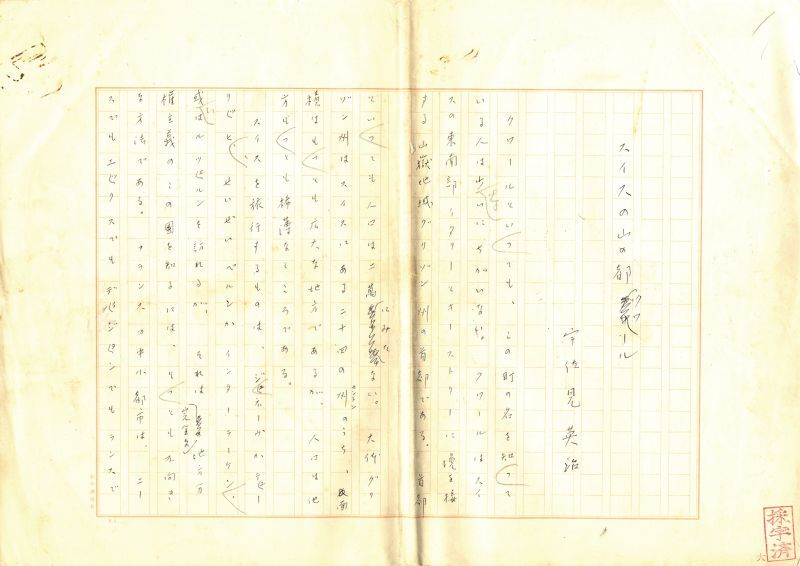 スイスの山の都 クール
宇佐見英治
クールといっても、この町の名を知って
いる人は少いにちがいない。クールはスイ
スの東南部イタリーとオーストリーに境を接
する山嶽地域グリゾン州の首都である。首都
といっても人口は二萬にみたない。大体グリ
ゾン州はスイスにある二十四の州のうち、面
積はもっとも広大な地方であるが、人口は他
方もっとも稀薄なところである。
スイスを旅行するものは、ジュネーヴかチュー
リヒ、せいぜいベルンかインターラーケン、
或いはルツェルンを訪れるが、それは地方分
権主義のこの国を知るには、もっとも不向き
な方法である。フランスの中小都市は、ニー
スでもエピクスでもディジョンでもランスで
採字済
六